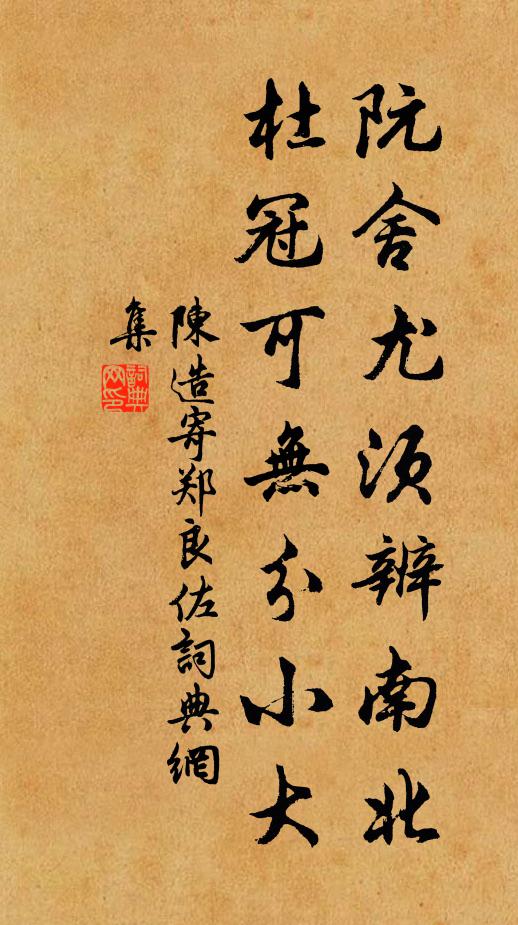 阮舍尤須辨南北
杜冠可無分小大
陳造寄郑良佐詞典網
集
詞典
网印